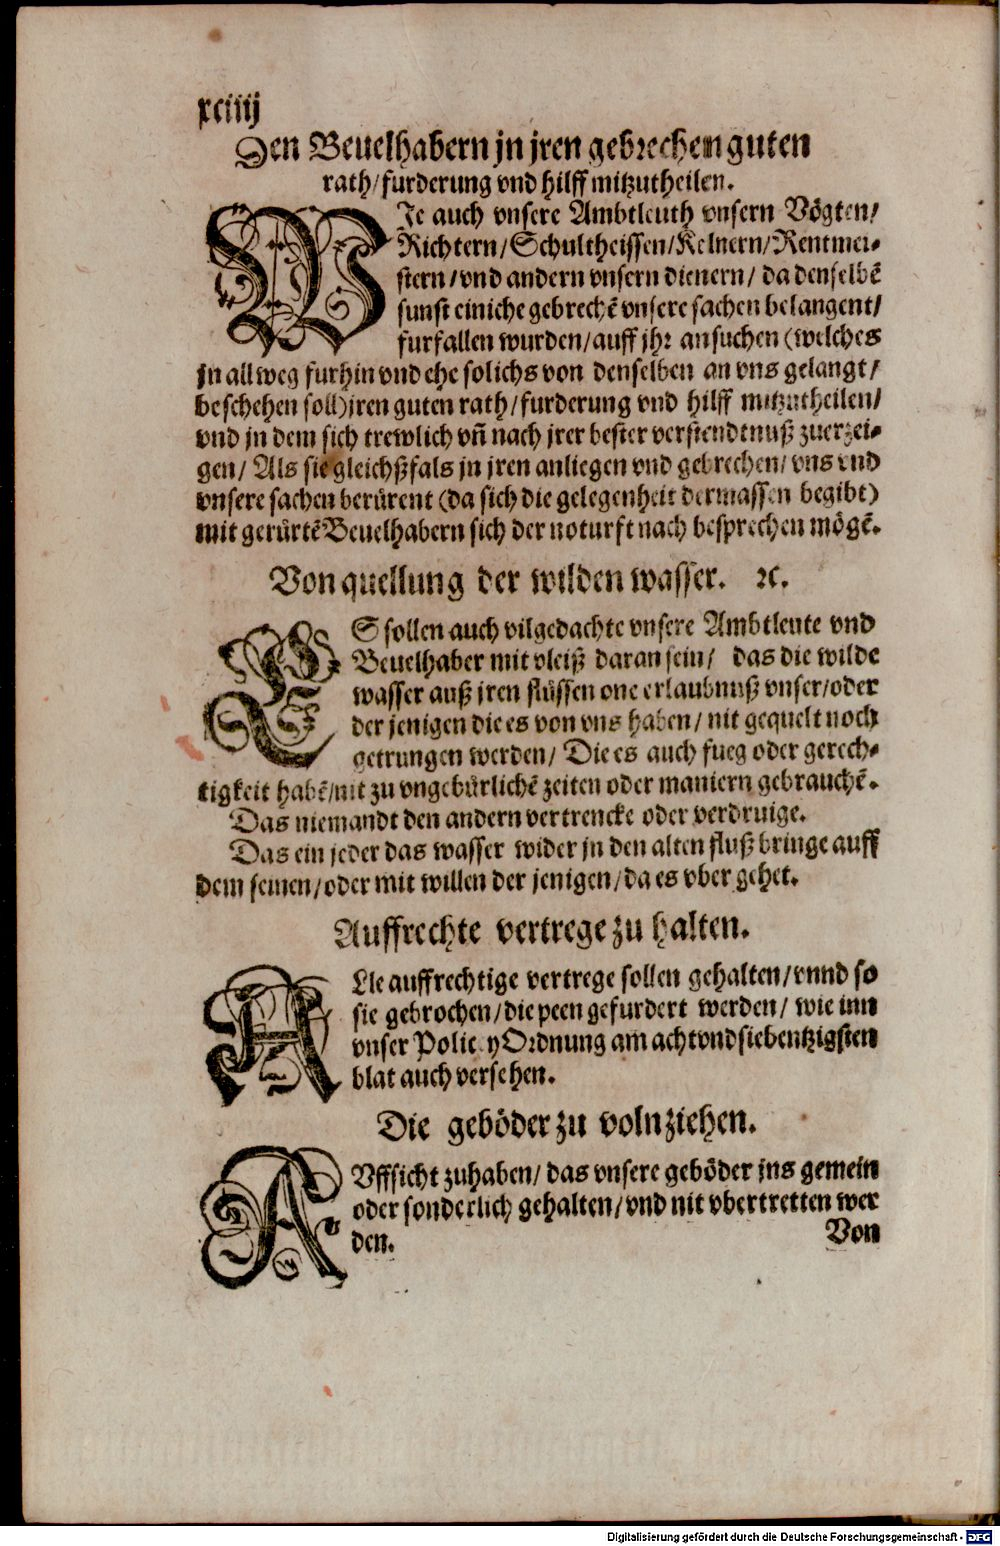 xciiij
Den Beuelhabern jn jren gebrechenn guten
rath/furderung vnd hilff mitzutheilen.
WIe auch vnsere Ambtleuth vnsern Vögten/
Richtern/Schultheissen/Kelnern/Rentmei-
stern/vnd andern vnsern dienern/ da denselbẽ
sunst einiche gebrechẽ vnsere sachen belangent/
furfallen wurden/auff jhr ansuchen (welches
jn allweg furhin vnd ehe solichs von denselben an vns gelangt/
beschehen soll)jren guten rath/furderung vnd hilff mitzutheilen/
vnd jn dem sich trewlich vñ nach jrer bester verstendtnuß zuerzei-
gen/ Als sie gleichßfals jn jren anliegen vnd gebrechen/ vns vnd
vnsere sachen berürent (da sich die gelegenheit dermassen begibt)
mit gerürtẽ Beuelhabern sich der noturft nach besprechen mögẽ.
Von quellung der wilden wasser. ꝛc.
ES sollen auch vilgedachte vnsere Ambtleute vnd
Beuelhaber mit vleiß daran sein/ das die wilde
wasser auß jren flüssen one erlaubnuß vnser/oder
der jenigen die es von vns haben/ nit gequelt noch
getrungen werden/ Die es auch fueg oder gerech-
tigkeit habẽ/nit zu vngebürlichẽ zeiten oder maniern gebrauchẽ.
Das niemandt den andern vertrencke oder verdruige.
Das ein jeder das wasser wider jn den alten fluß bringe auff
dem seinen/oder mit willen der jenigen/da es vber gehet.
Auffrechte vertrege zu halten.
ALle auffrechtige vertrege sollen gehalten/vnnd so
sie gebrochen/die peen gefurdert werden/ wie inn
vnser Policey Ordnung am achtvndsiebentzigsten
blat auch versehen.
Die geböder zu volnziehen.
AVffsicht zuhaben/ das vnsere geböder jns gemein
oder sonderlich gehalten/vnd nit vbertretten wer
den.
Von
Digitalisierung gefördert durch die Deutsche Forschungsgemeinschaft - DFG